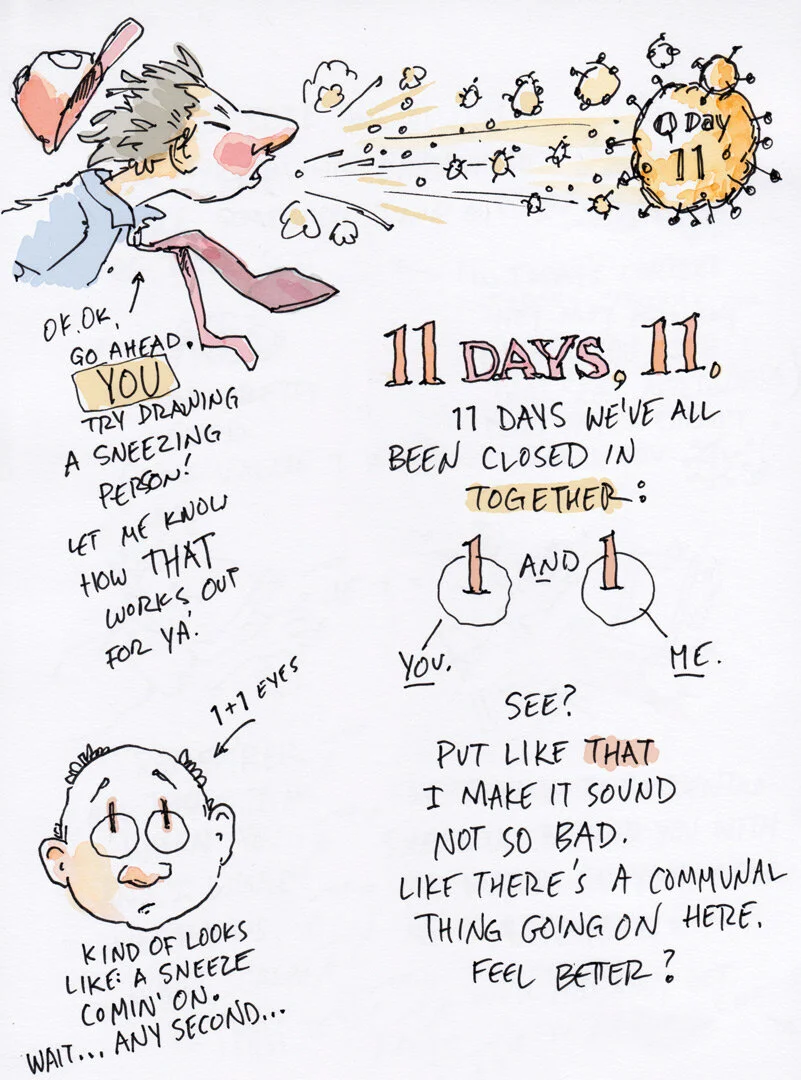 Q Day
11
OK. OK,
GO AHEAD.
YOU
TRY DRAWING
A SNEEZING
PERSON!
LET ME KNOW
HOW THAT
WORKS OUT
FOR YA'.
11 DAYS, 11.
11 DAYS WE'VE ALL
BEEN CLOSED IN
TOGETHER:
1 AND 1
YOU. ME.
SEE?
PUT LIKE THAT
I MAKE IT SOUND
NOT SO BAD.
LIKE THERE'S A COMMUNAL
THING GOING ON HERE.
FEEL BETTER?
1+1 EYES
KIND OF LOOKS
LIKE: A SNEEZE
COMIN' ON.
WAIT... ANY SECOND...